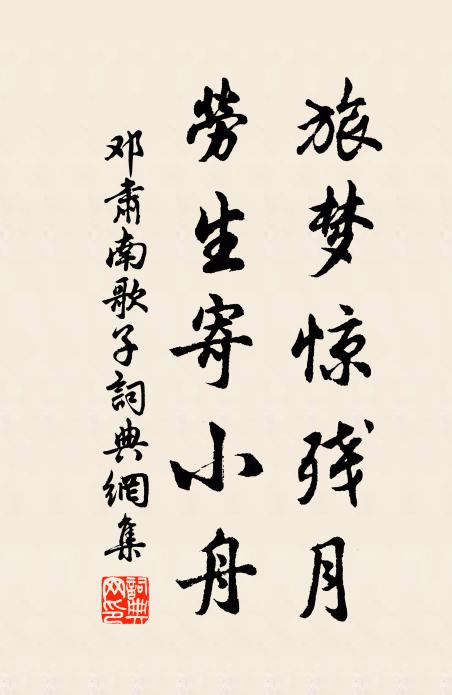 旅梦惊残月
劳生寄小舟
邓肃南歌子詞典網集
詞典网印